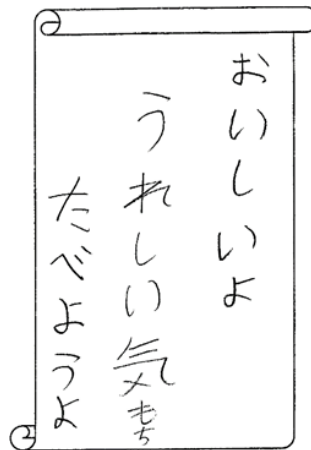 おいしいよ
うれしい気もち
たべようよ